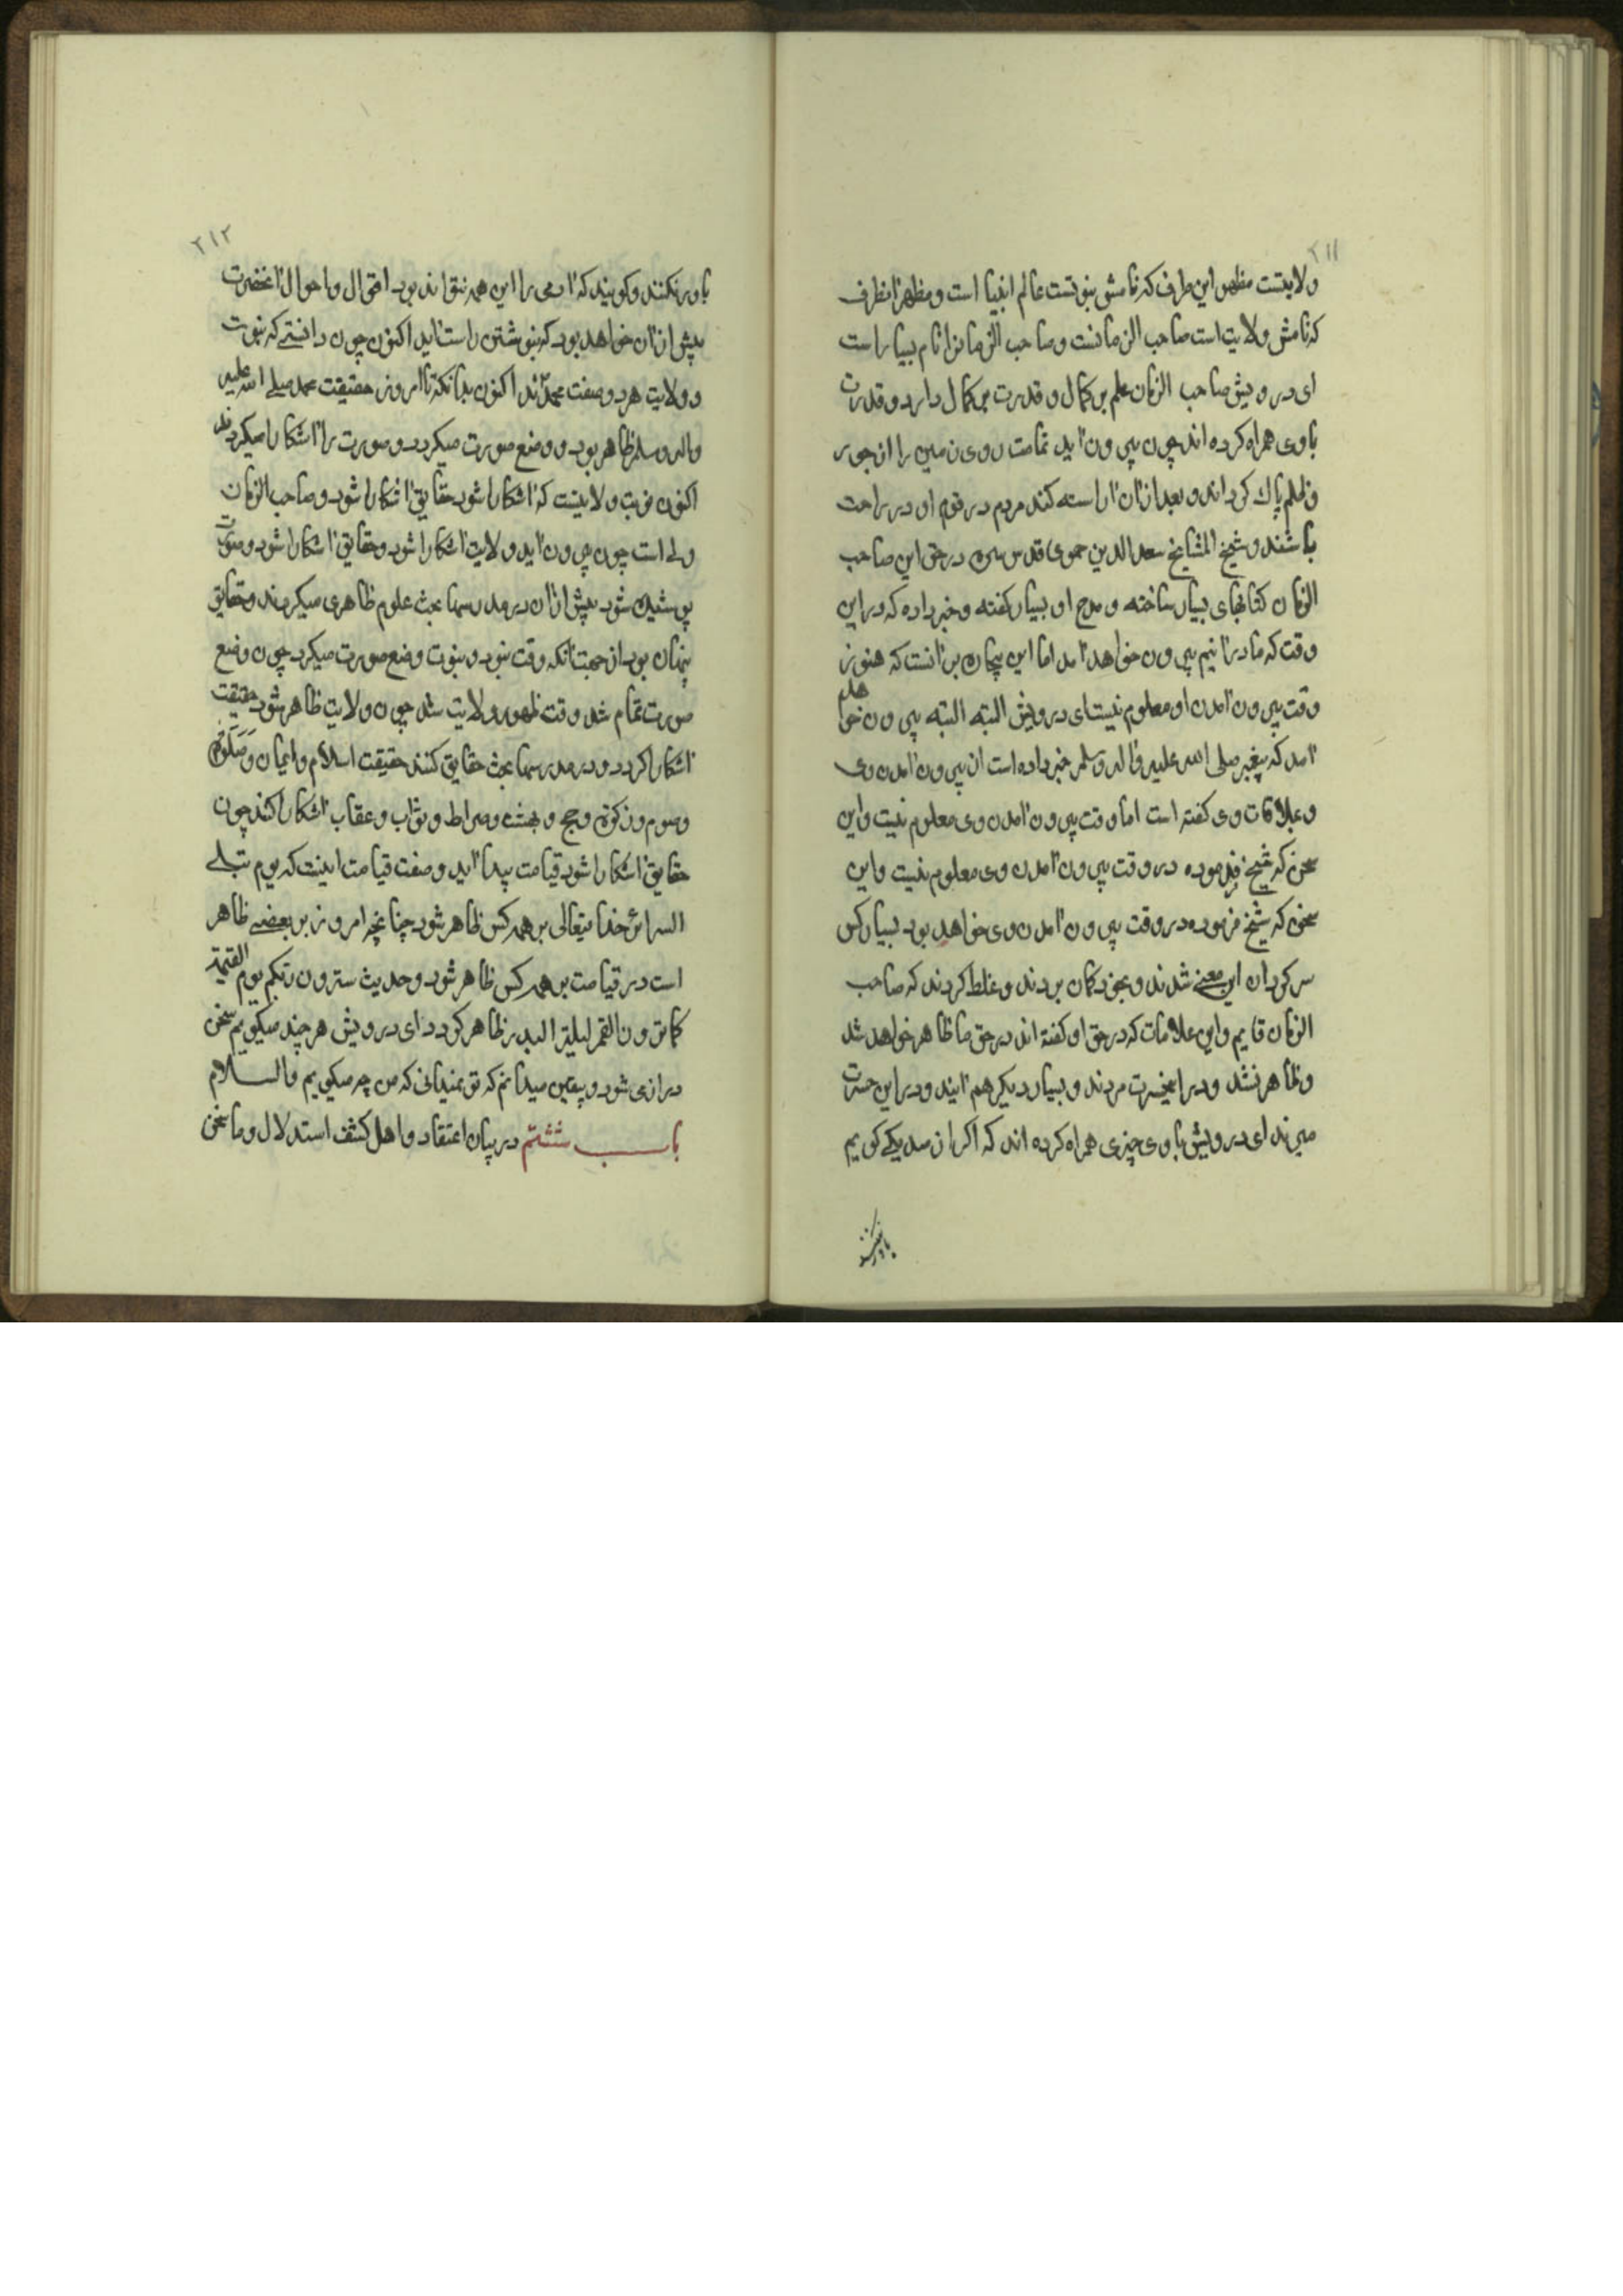 ۲۱۱
ولایتست مظهر این طرف که نامش نبوتست عالم انبیا است و مظهر آنطرف
که نامش ولایت است صاحب الزمانست و صاحب الزمانرا نام بسیار است
ای درویش صاحب الزمان علم بر کمال و قدرت بر کمال دارد و قدرت
با وی همراه کرده اند چون بیرون آید تمامت روی زمین را از جور
و ظلم پاک کرداند و بعد از آن آراسته کند مردم در او در راحت
باشند و شیخ المشایخ سعد الدین حموی قدس سره در حق این صاحب
الزمان کتابهای بسیار ساخته و مدح او بسیار کفته و خبر داده که در این
وقت که ما درآنیم بیرون خواهد آمد اما این بیچاره بر آنست که هنوز
وقت بیرون آمدن او معلوم نیست ای درویش البته البته بیرون خواهد
آمد که پیغمبر صلی الله علیه و اله و سلم خبر داده است از بیرون آمدن وی
و علامات وی کفته است اما وقت بیرون آمدن وی معلوم نیست و این
سخن که شیخ فرموده در وقت بیرون آمدن وی معلوم نیست و این
سخن که شیخ فرموده در وقت بیرون آمدن وی خواهد بود بسیار کس
سرکردان این معنی شدند و بخود کمان بردند و غلط کردند که صاحب
الزمان قایم و این علامات که در حق او کفته اند در حق ما ظاهر خواهد شد
و ظاهر نشد و در این حسرت مردند و بسیار دیکر هم آیند و در این حسرت
میرند ای درویش با وی چیزی همراه کرده اند که اکر از صد یکی کویم
باور نکنند
۲۱۲
باور نکنند و کویند که آدمی را این همه نتواند بود اقوال و احوال آنحضرت
بیش از آن خواهد بود که بنوشتن راست آید اکنون چون دانستی که نبوت
و ولایت هر دو صفت محمدند اکنون بدانکه تا امروز حقیقت محمد صلی الله علیه
واله و سلم ظاهر بود و وضع صورت میکردد و صورت را آشکارا میکردند
اکنون نوبت ولایتست که آشکارا شود حقایق آشکارا شود و صاحب الزمان
ولی است چون بیرون آید ولایت آشکارا شود و حقایق آشکارا شود و صورت
پوشیده شود بیش از آن در مدرسها بحث علوم ظاهری میکردند و حقایق
پنهان بود از جهت آنکه وقت نبود و نبوت وضع صورت میکرد چون وضع
صورت تمام شد وقت ظهور ولایت شد چون ولایت ظاهر شود حقیقت
آشکارا کردد و در مدرسها بحث حقایق کنند حقیقت اسلام و ایمان و صلوة
و صوم و زکوة و حج و بهشت و صراط و ثواب و عقاب آشکارا کنند چون
حقایق آشکارا شود قیامت پیدا آید و صفت قیامت اینست که یوم تبلی
السرائر خدایتعالی بر همه کس ظاهر شود چنانچه امروز بر بعضی ظاهر
است در قیامت بر همه کس ظاهر شود و حدیث سترون ربکم یوم القیمة
کما ترون القمر لیلة البدر ظاهر کردد ای درویش هر چند میکویم سخن
درازی شود و بیقین میدانم که تو نمیدانی که من چه میکویم والسلام
باب ششم در بیان اعتقاد و اهل کشف استدلال و ما سخن